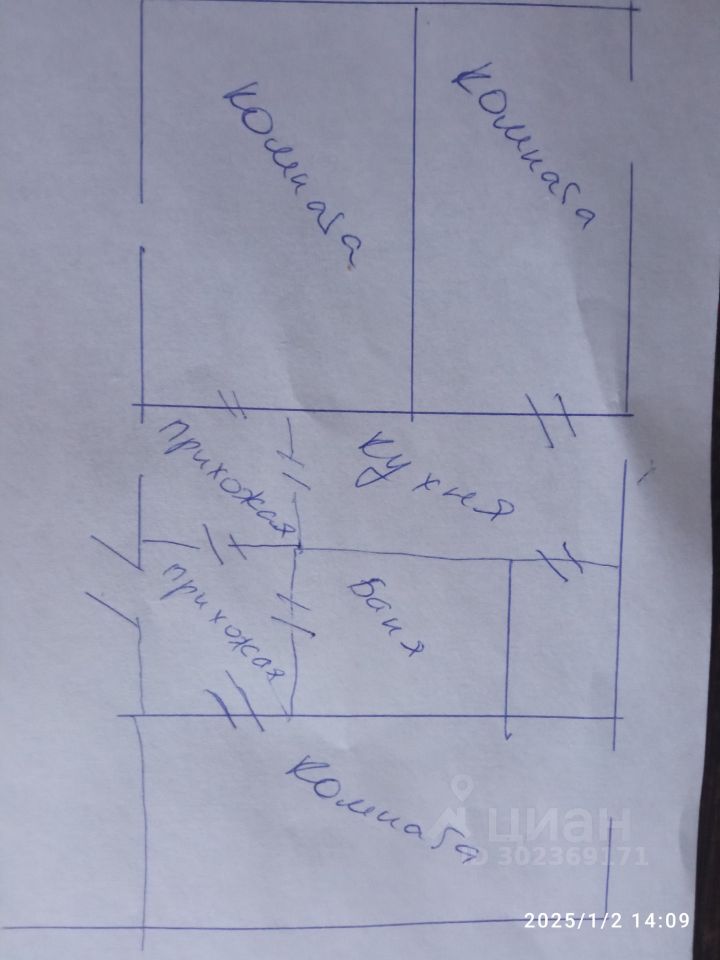 комната
комната
прихожая
кухня
прихожая
Баня
комната
циан
ID 302369171
2025/1/2 14:09